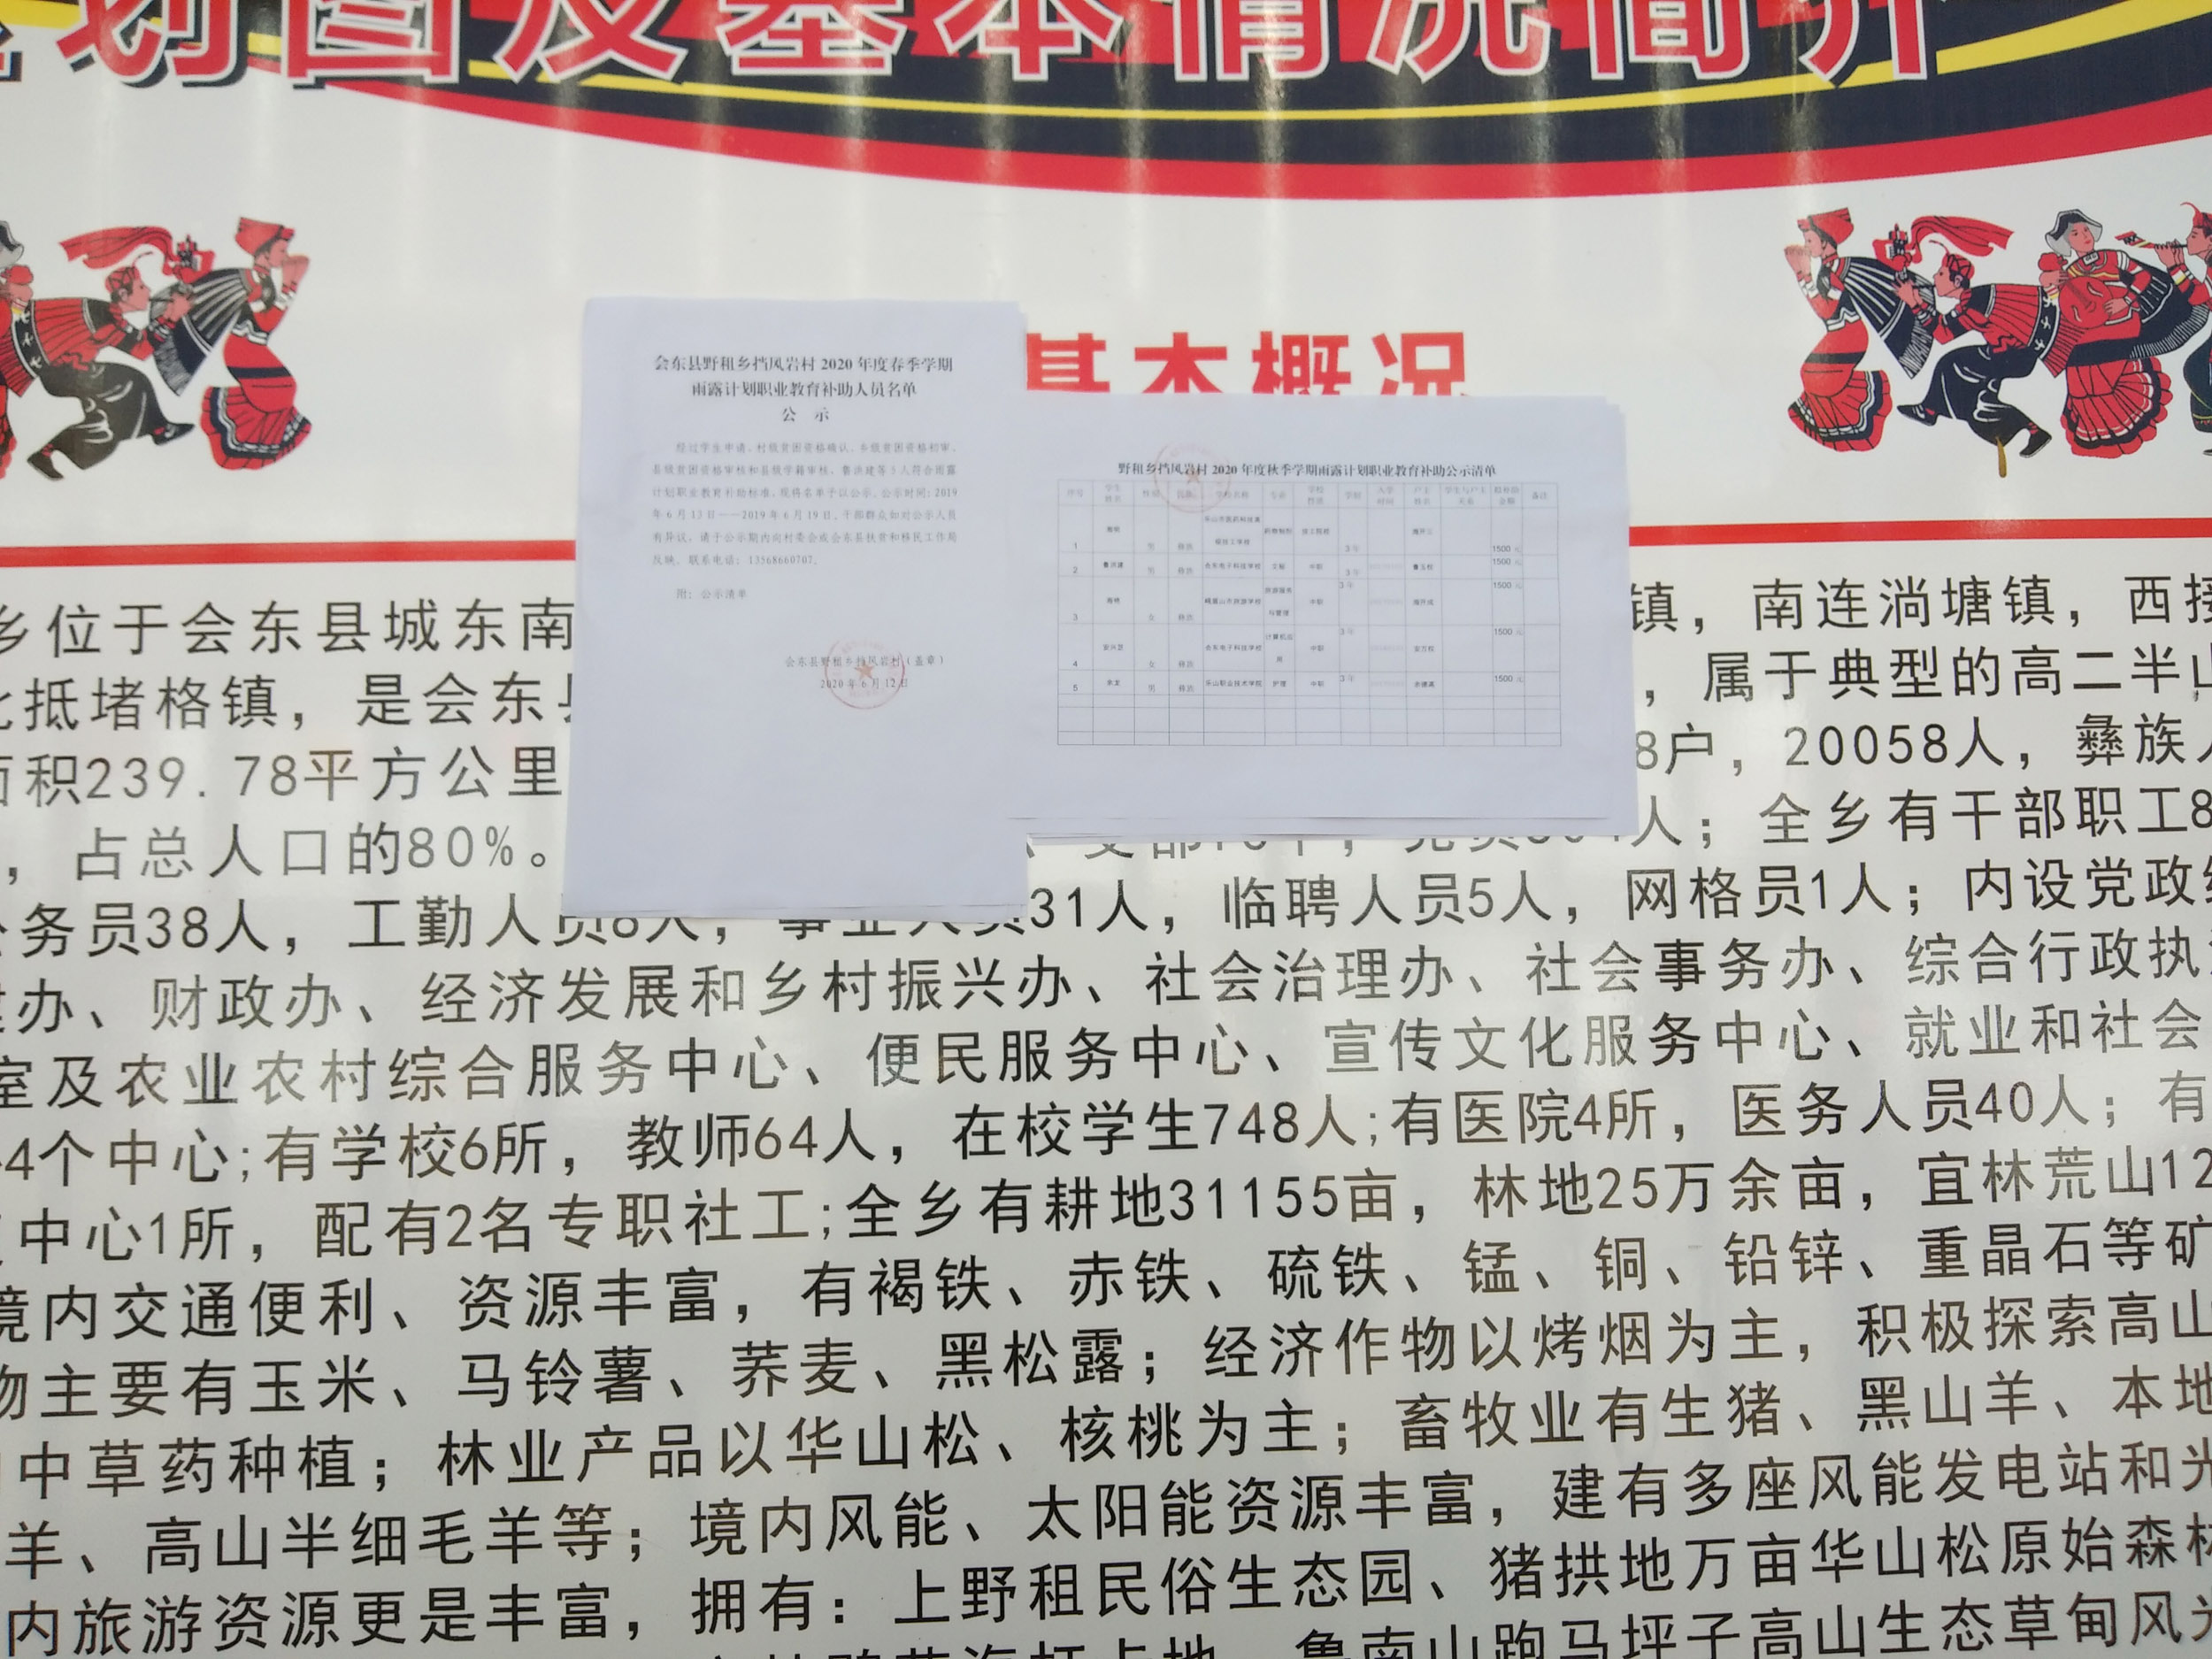 划图及基本情况简介
基本概况
会东县野租乡挡风岩村 2020 年度春季学期
雨露计划职业教育补助人员名单
公 示
经过学生申请、村级贫困资格确认、乡级贫困资格初审、
县级贫困资格审核和县级学籍审核，鲁洪建等 5 人符合雨露
计划职业教育补助标准，现将名单予以公示，公示时间：2019
年 6 月 13 日——2019 年 6 月 19 日，干部群众如对公示人员
有异议，请于公示期内向村委会或会东县扶贫和移民工作局
反映，联系电话：13568660707。
附：公示清单
会东县野租乡挡风岩村（盖章）
2020 年 6 月 12 日
野租乡挡风岩村 2020 年度秋季学期雨露计划职业教育补助公示清单
序号 学生姓名 性别 民族 学校名称 专业 学校性质 学制 入学时间 户主姓名 学生与户主关系 金额 备注
1 男 彝族 3 年 1500 元
2 鲁洪建 男 彝族 会东电子科技学校 中职 3 年 1500 元
3 女 彝族 峨眉山市旅游学校 旅游服务与管理 中职 3 年 1500 元
4 女 彝族 会东电子科技学校 计算机应用 中职 3 年 1500 元
5 男 彝族 乐山职业技术学院 护理 中职 3 年 1500 元
乡位于会东县城东南 镇，南连淌塘镇，西接
北抵堵格镇，是会东县 ，属于典型的高二半山
面积239.78平方公里 8户，20058人，彝族人
，占总人口的80%。 人；全乡有干部职工8
公务员38人，工勤人员8人，事业人员31人，临聘人员5人，网格员1人；内设党政综
建办、财政办、经济发展和乡村振兴办、社会治理办、社会事务办、综合行政执法
室及农业农村综合服务中心、便民服务中心、宣传文化服务中心、就业和社会
4个中心;有学校6所，教师64人，在校学生748人;有医院4所，医务人员40人；有
中心1所，配有2名专职社工;全乡有耕地31155亩，林地25万余亩，宜林荒山12
境内交通便利、资源丰富，有褐铁、赤铁、硫铁、锰、铜、铅锌、重晶石等矿
物主要有玉米、马铃薯、荞麦、黑松露；经济作物以烤烟为主，积极探索高山
中草药种植；林业产品以华山松、核桃为主；畜牧业有生猪、黑山羊、本地
羊、高山半细毛羊等；境内风能、太阳能资源丰富，建有多座风能发电站和光
内旅游资源更是丰富，拥有：上野租民俗生态园、猪拱地万亩华山松原始森林
鲁南山跑马坪子高山生态草甸风光